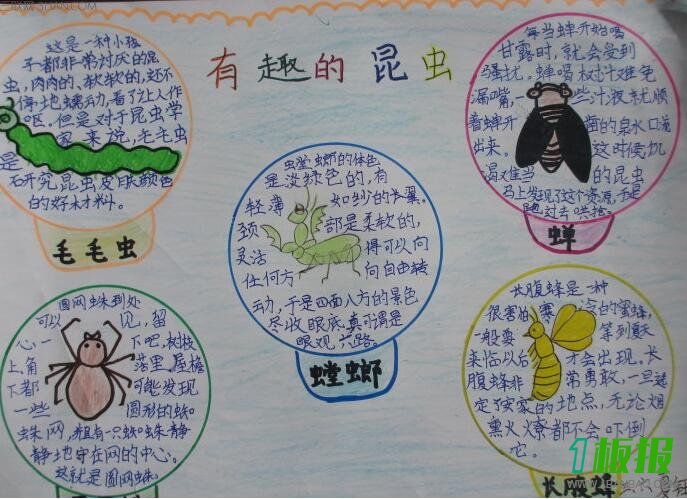 有趣的昆虫
这是一种小孩
子都非常讨厌的昆
虫,肉肉的、软软的,还不
停地蠕动,看了让人作
呕。但是对于昆虫学
家来说,毛毛虫
是
研究昆虫皮肤颜色
的好材料。
毛毛虫
每当蝉开始喝
甘露时,就会受到
骚扰。蝉喝树汁难免
漏嘴,一些汁液就顺
着蝉开凿的泉水口流
出来。这时候,饥
渴难当的昆虫
马上发现了这个资源,于是
跑过去哄抢。
蝉
螳螂的体色
是淡绿色的,有
轻薄如纱的长翼。
颈部是柔软的,
灵活得可以向
任何方向自由转
动,于是四面八方的景色
尽收眼底,真可谓是
眼观六路。
螳螂
圆网蛛到处
可以见,留
心一下吧,树枝
上角落里,屋檐
下都可能发现
一些圆形的蛛
蛛网,并且有一只蜘蛛静
静地守在网的中心。
这就是圆网蛛。
长腹蜂是一种
很害怕寒冷的蜜蜂,
一般要等到夏天
来临以后才会出现。长
腹蜂非常勇敢,一旦选
定了安家的地点,无论烟
熏火燎都不会吓倒
它。
长腹蜂
1板报